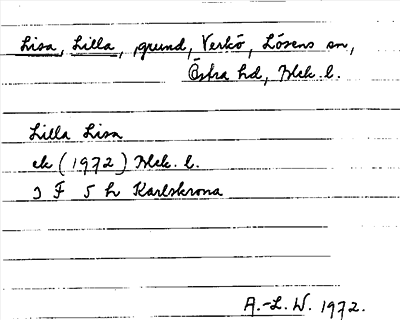 Lisa, Lilla, grund, Verkö, Lösens sn,
Östra hd, Blek. l.
Lilla Lisa
ek (1972) Blek. l.
3 F 5 h Karlskrona
A.-L. W. 1972.